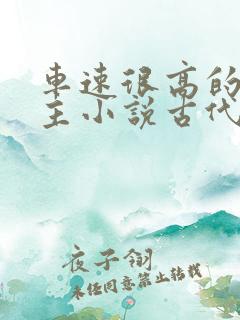 车速很高的
主小说古代
夜子翎
未经同意禁止转载